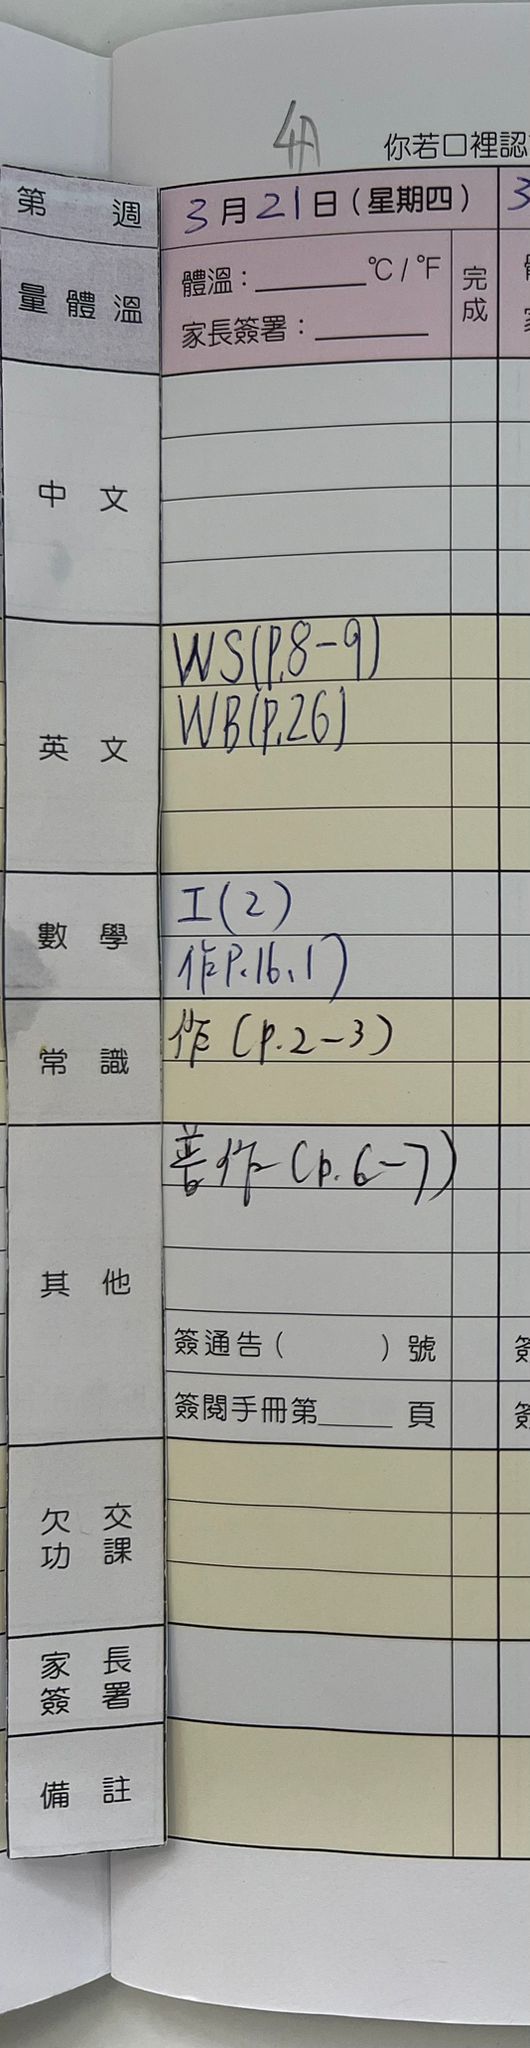 4A
你若口裡認
第 週
3月21日(星期四)
3
量體溫
體溫：______°C/°F
完成
家長簽署：______
中文
英文
WS(P.8-9)
WB(P.26)
數學
工(2)
作P.16、17
常識
作(p.2-3)
其他
普作(p.6-7)
簽通告( )號
簽閱手冊第____頁
欠交功課
家長簽署
備註